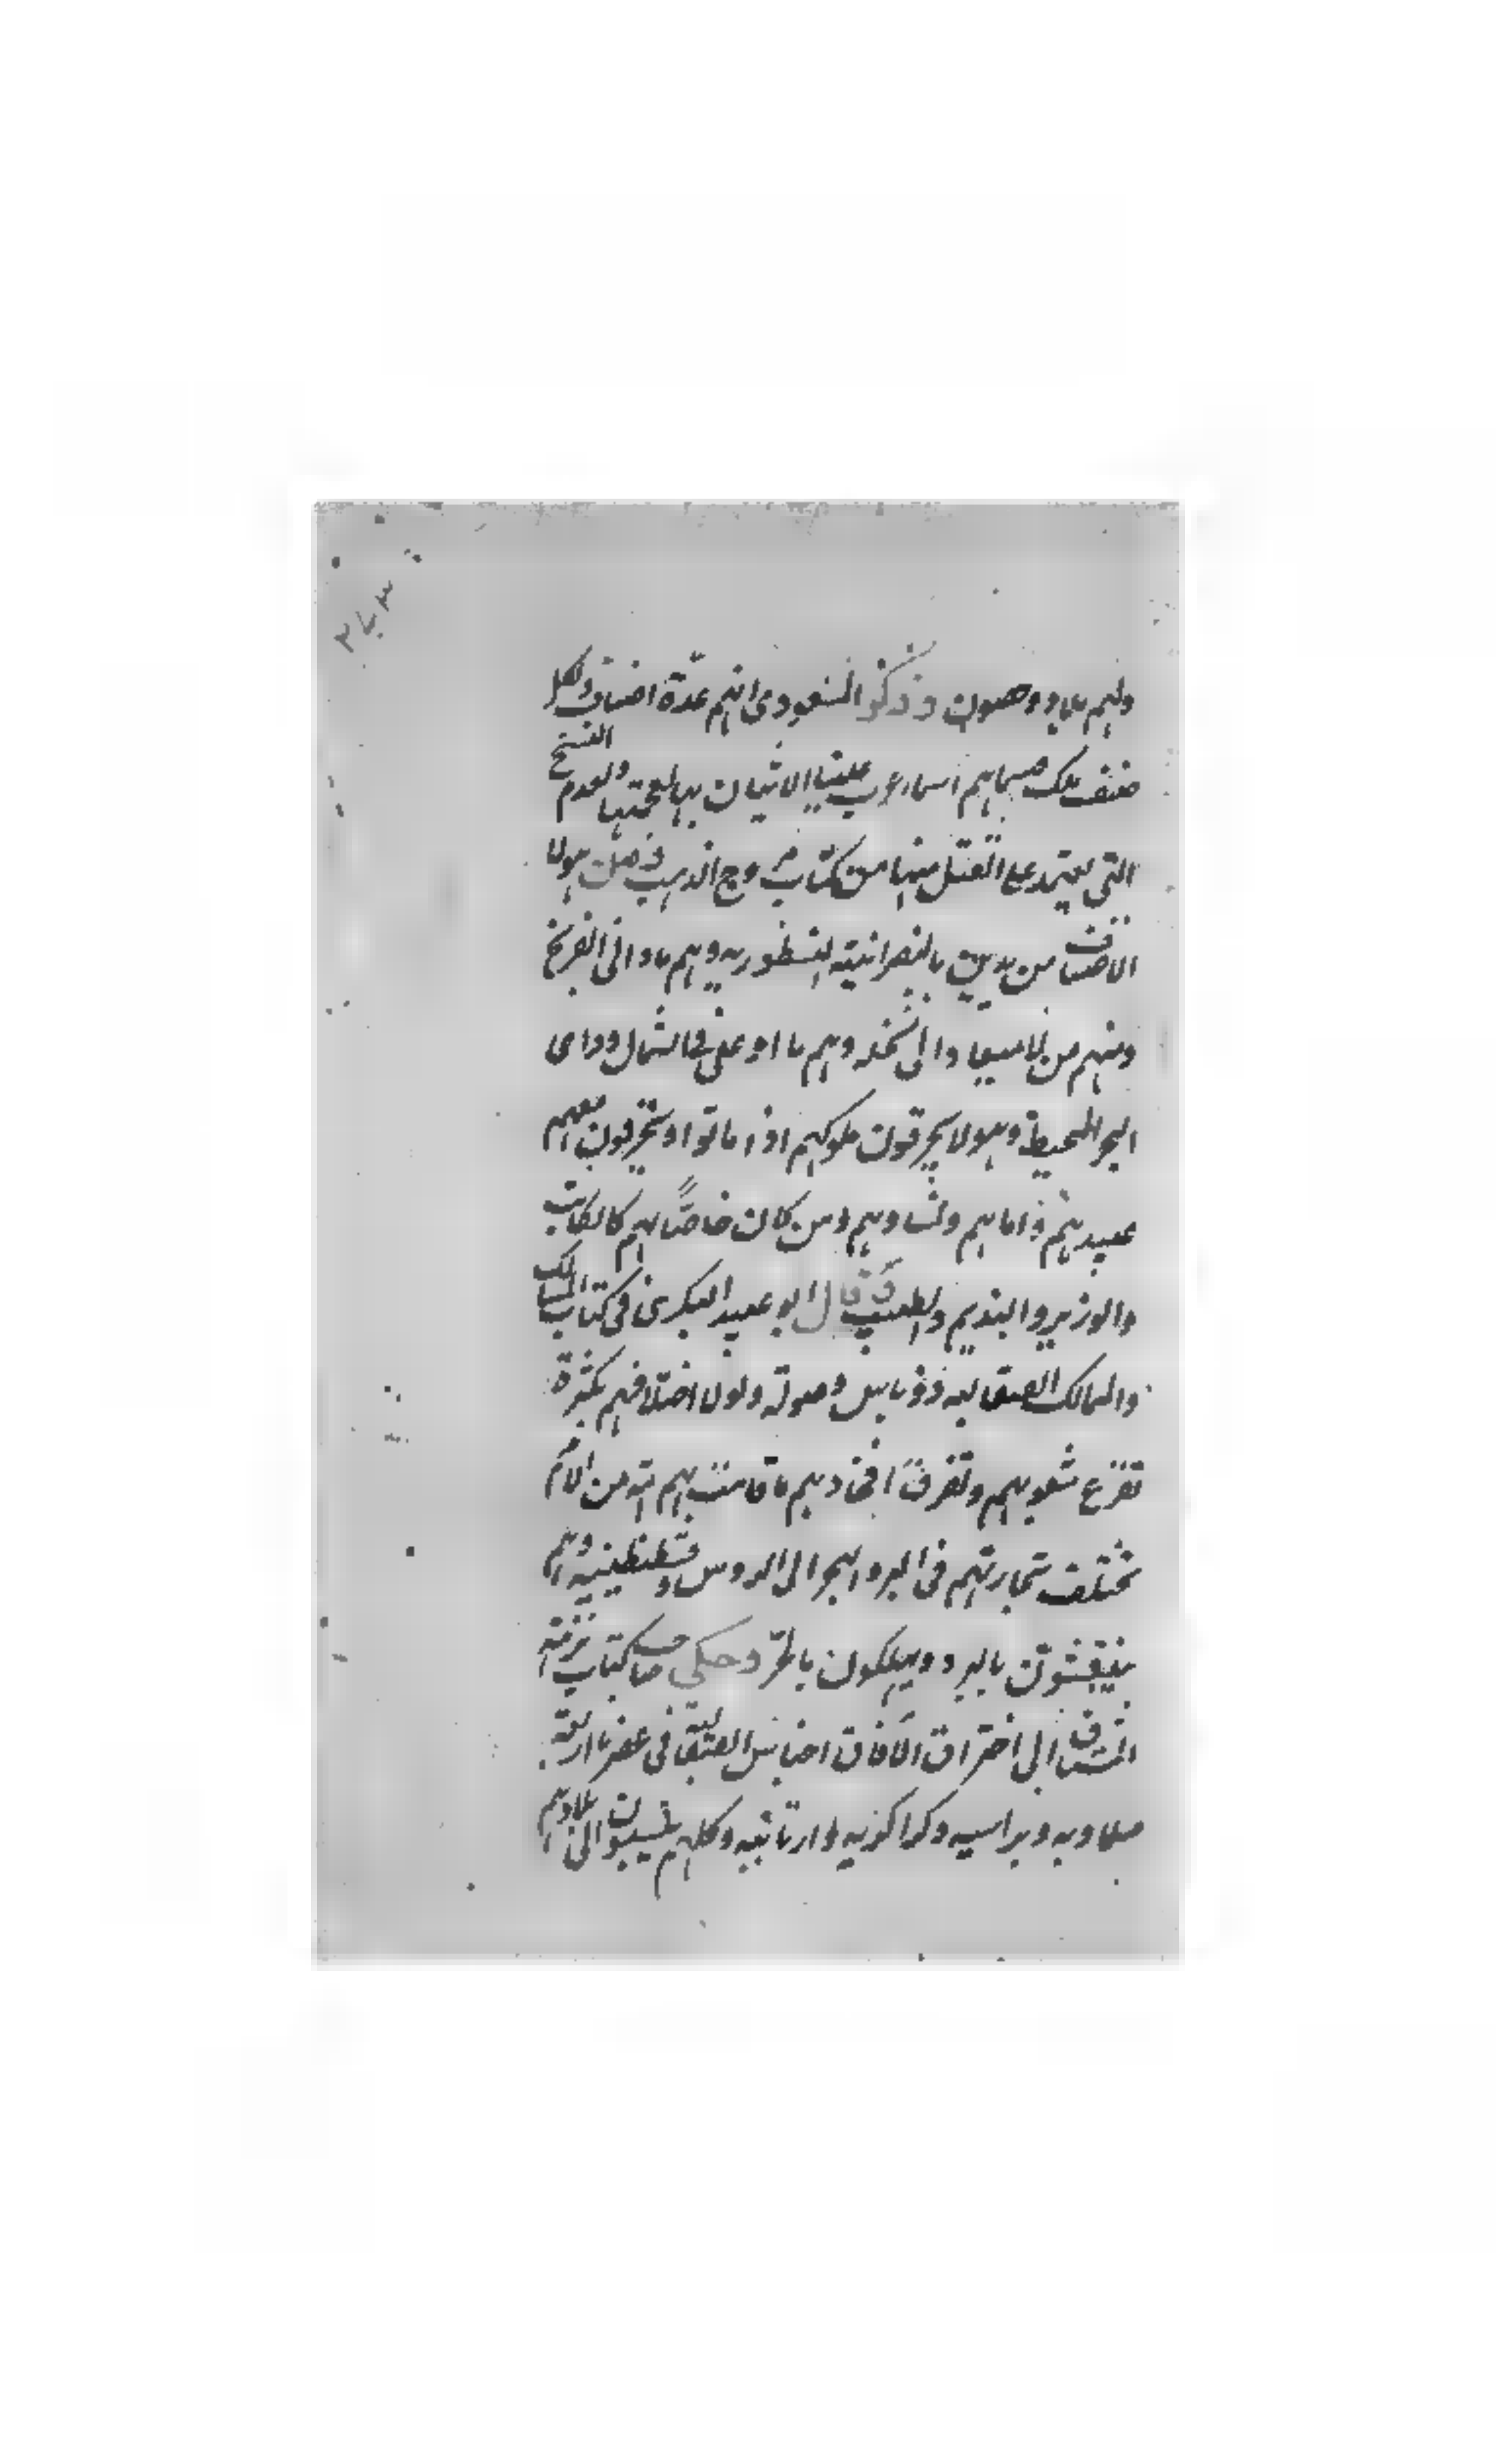 ٣٧٣
ولهم بلاد وحصون وذكر المسعودى انهم عدّة اصناف ولكل
صنف ملك سماهم اسما عزب علينا الاتيان بها لعجمتها ولعدم النسخ
التى يعتمد على النقل منها من كتاب مروج الذهب فمن هولا
الاصناف من يدين بالنصرانية النسطوريه وهم مادانى الفرنج
ومنهم من لا ينقاد الى نحلة وهم ما اوغل فى الشمال ودانى
البحر المحيط وهولا يحرقون ملوكهم اذا ماتوا ويحرقون معهم
عبيدهم واماهم ونساوهم ومن كان خاصًّا بهم كالكاتب
والوزير والنديم والطبيب وقال ابو عبيد البكرى فى كتاب المسالك
والممالك الصقالبه ذوو باس وصولة ولولا اختلافهم بكثرة
تفرع شعوبهم وتفرق افخاذهم ماقامت بهم امة من الامم
تختلف تجارتهم فى البر والبحر الى الروس وقسطنطينية وهم
ينتعشون بالبرد ويهلكون بالحرّ وحكى صاحب كتاب نزهة
المشتاق الى اختراق الآفاق اجناس الصقالبة فى عصرنا اربعة
صلاويه وبراسيه وكراكريه وارتانيه وكلهم ينسبون الى بلادهم